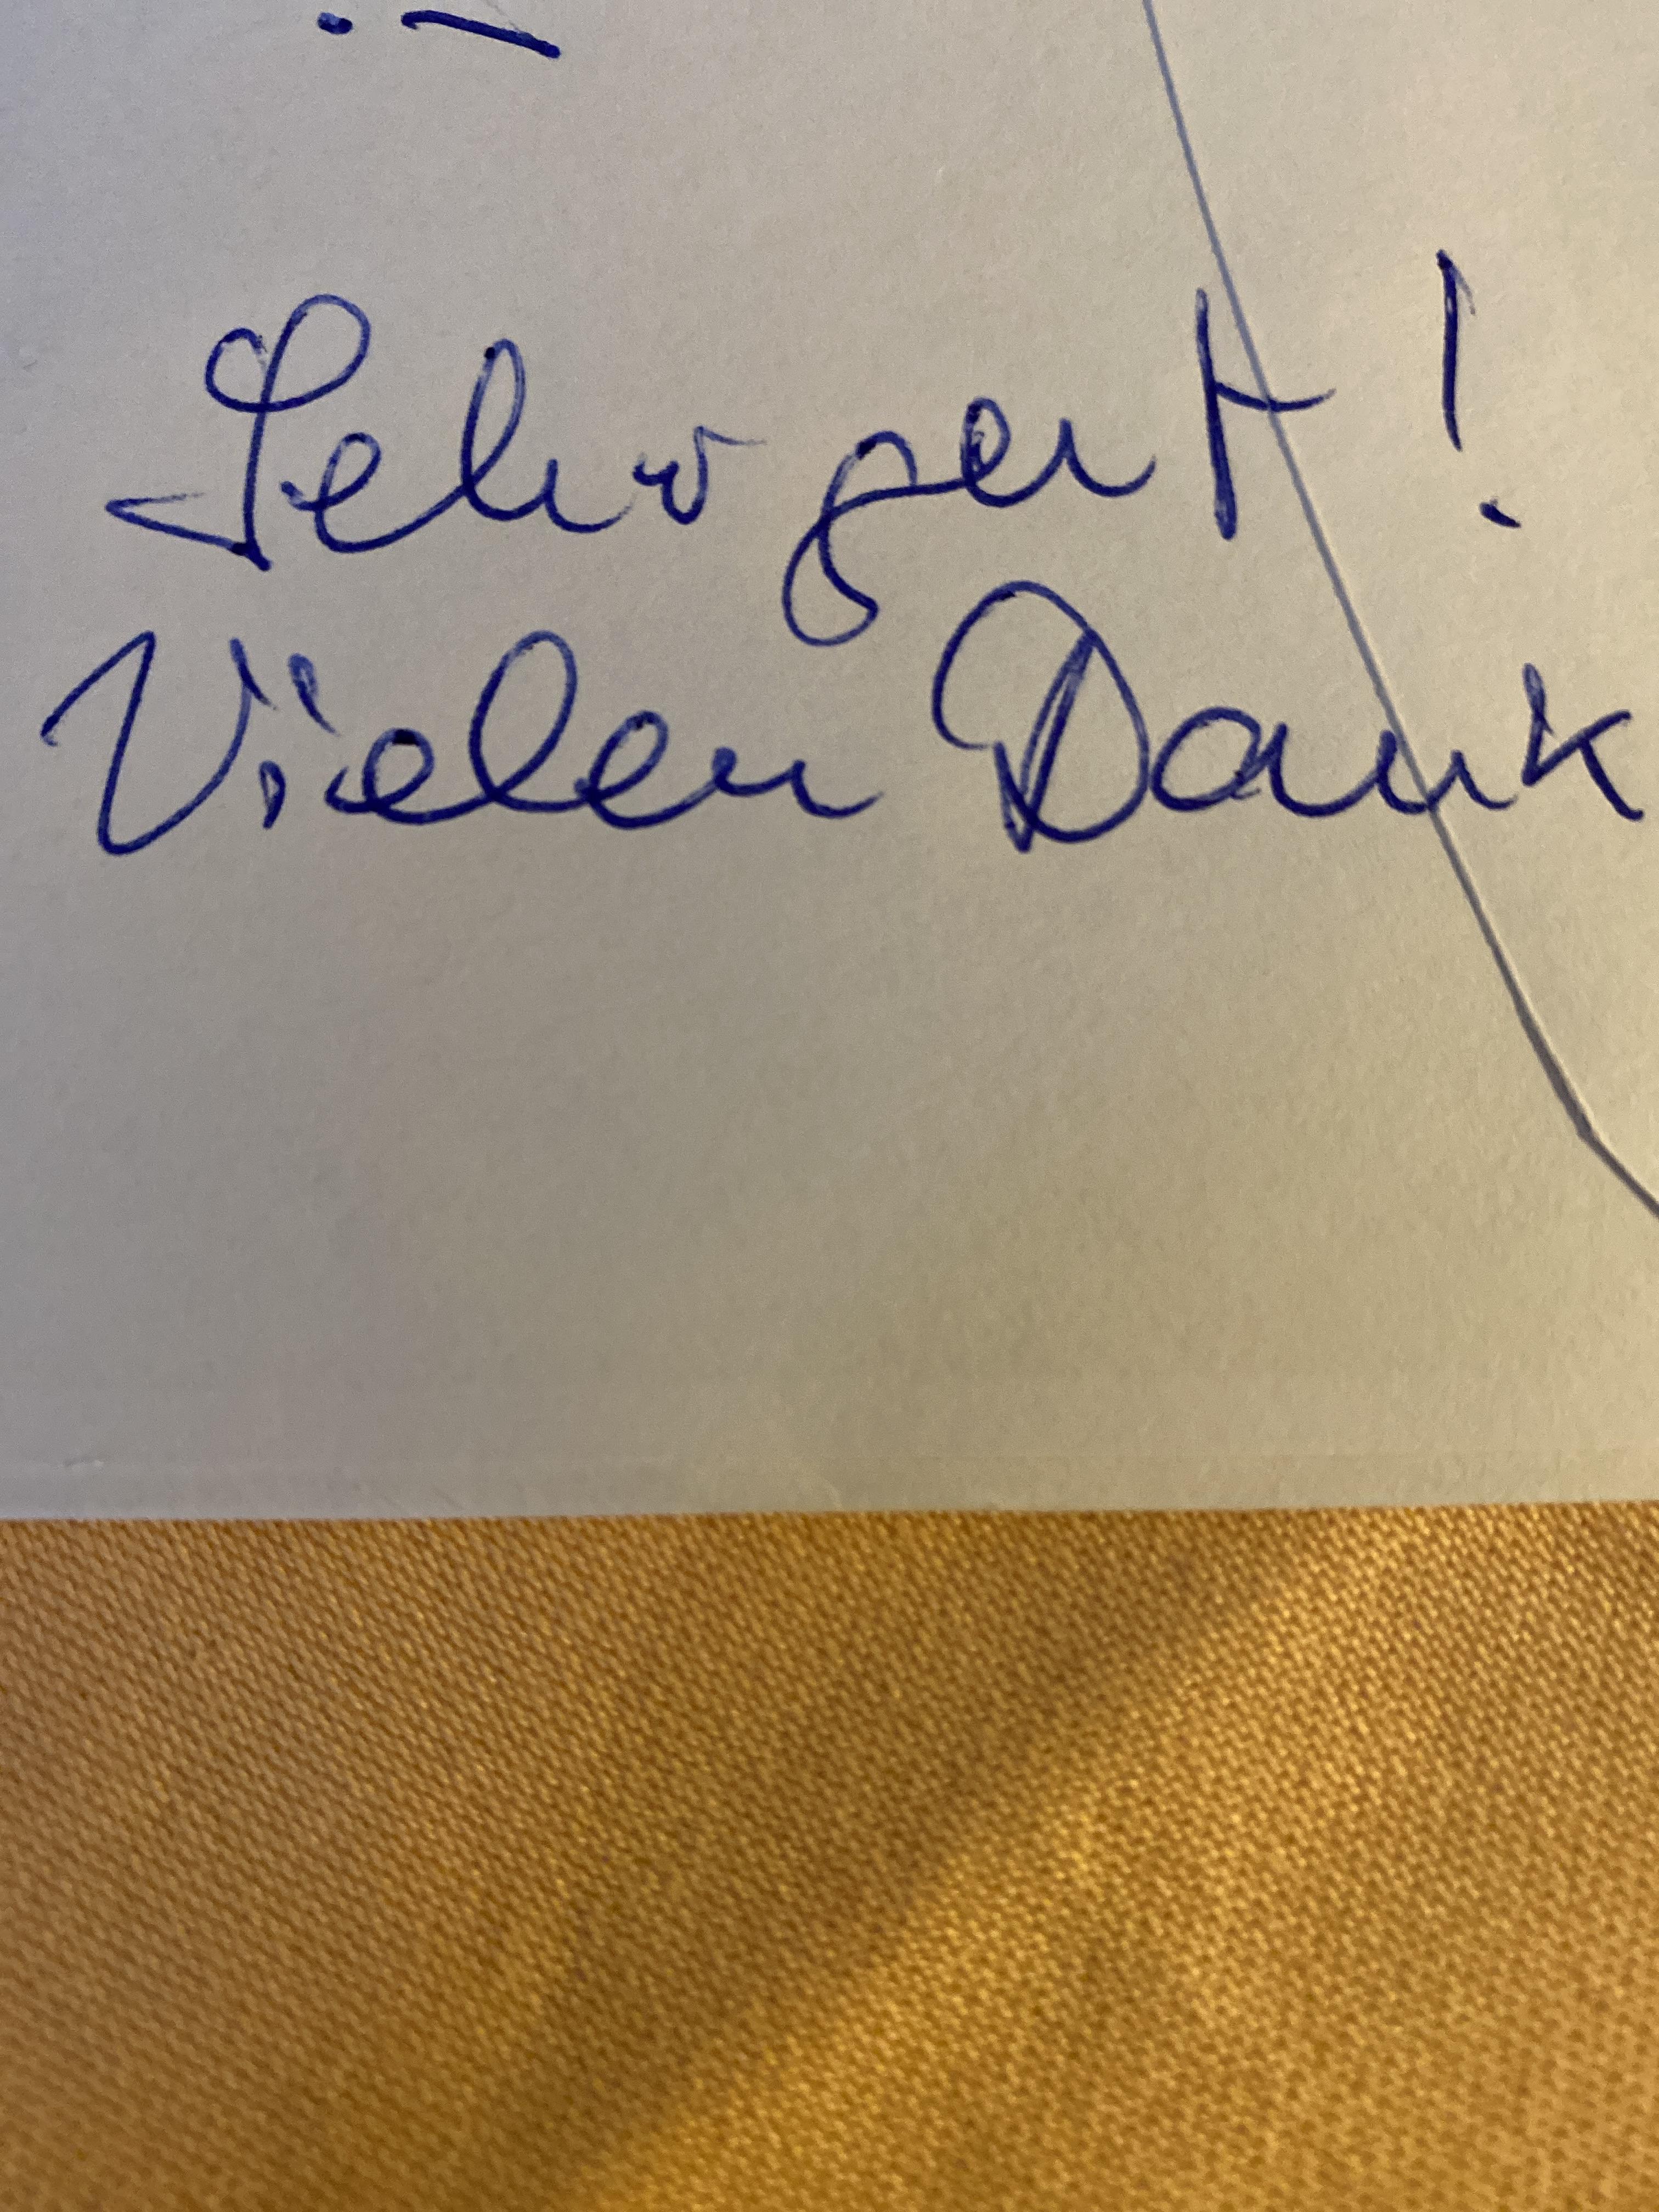 Sehr gut!
Vielen Dank